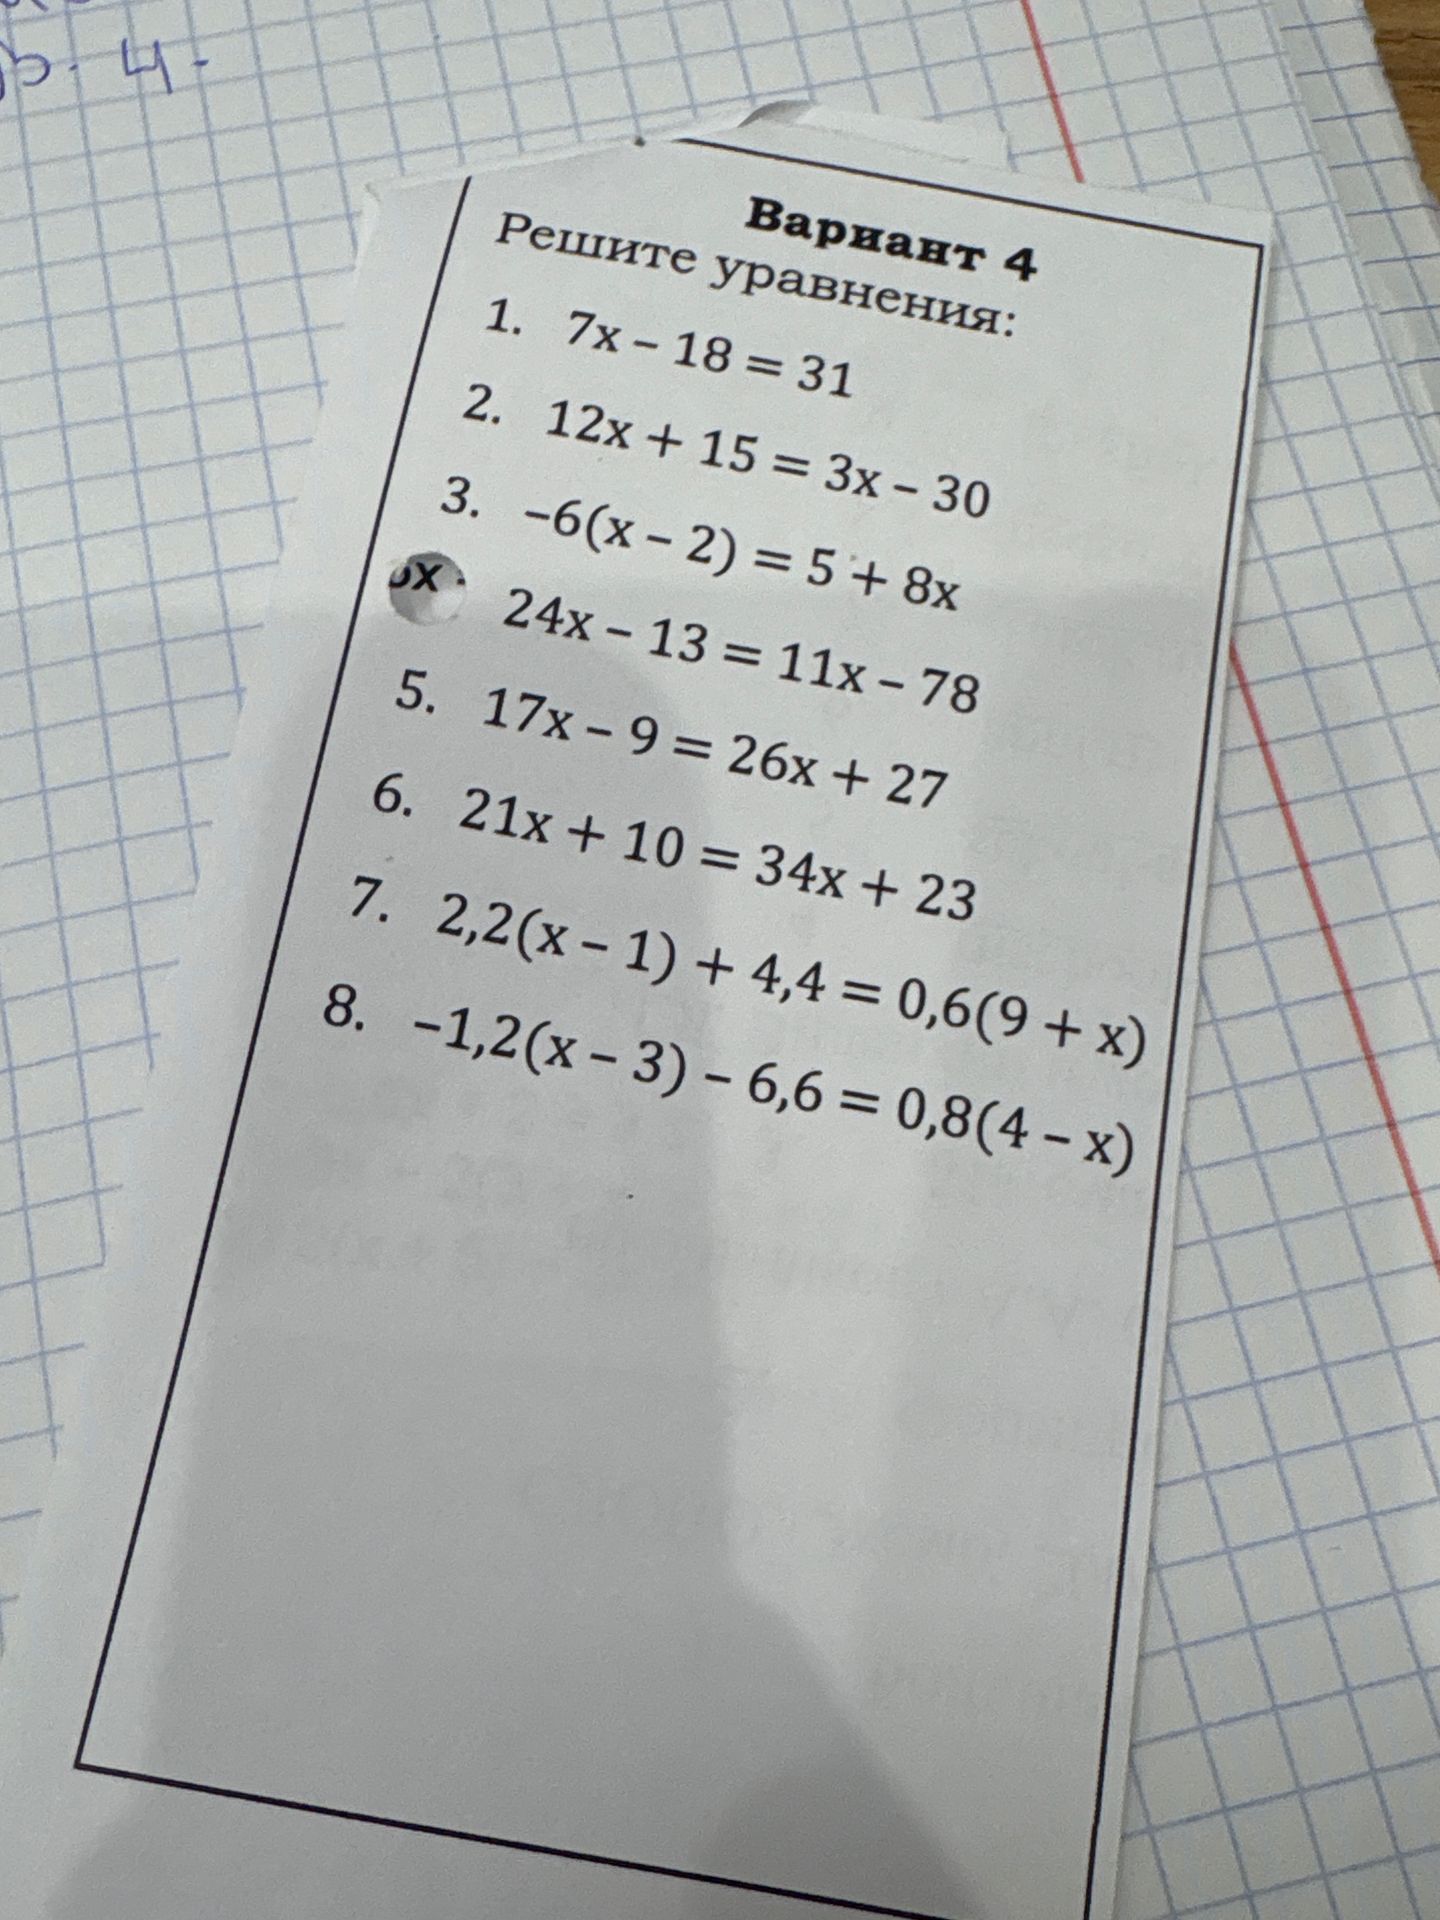 4 -
Вариант 4
Решите уравнения:
1. 7x – 18 = 31
2. 12x + 15 = 3x – 30
3. –6(x – 2) = 5 + 8x
24x – 13 = 11x – 78
5. 17x – 9 = 26x + 27
6. 21x + 10 = 34x + 23
7. 2,2(x – 1) + 4,4 = 0,6(9 + x)
8. –1,2(x – 3) – 6,6 = 0,8(4 – x)